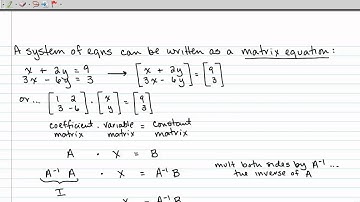 A system of eqns can be written as a matrix equation:
x + 2y = 9
3x - 6y = 3
→ [x + 2y
3x - 6y] = [9
3]
or... [1 2
3 -6] · [x
y] = [9
3]
coefficient · variable = constant
matrix matrix matrix
A · X = B
A⁻¹ A · X = A⁻¹ B
I
mult both sides by A⁻¹ ...
the inverse of A
X = A⁻¹ B